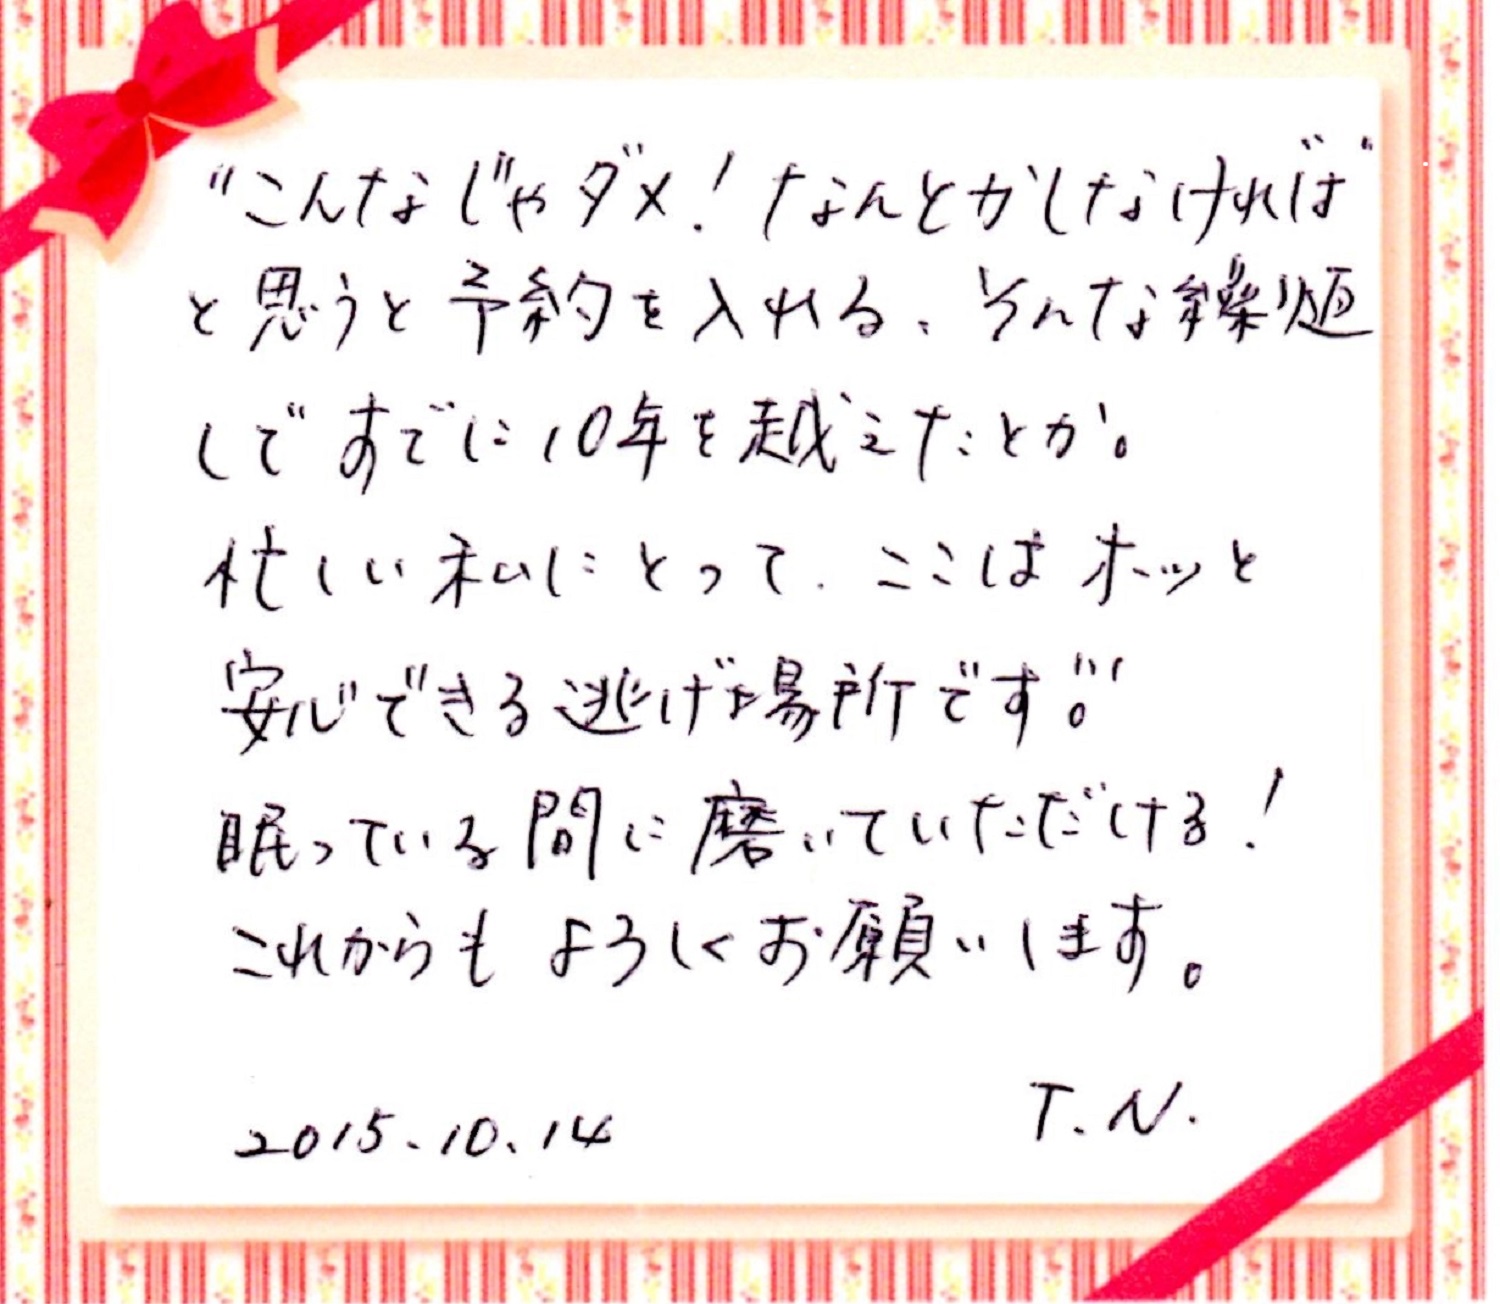 "こんなじゃダメ！なんとかしなければ"
と思うと予約を入れる、そんな繰り返
しですでに10年を越えたとか。
忙しい私にとって、ここはホッと
安心できる逃げ場所です。"
眠っている間に磨いていただける！
これからもよろしくお願いします。
T.N.
2015.10.14